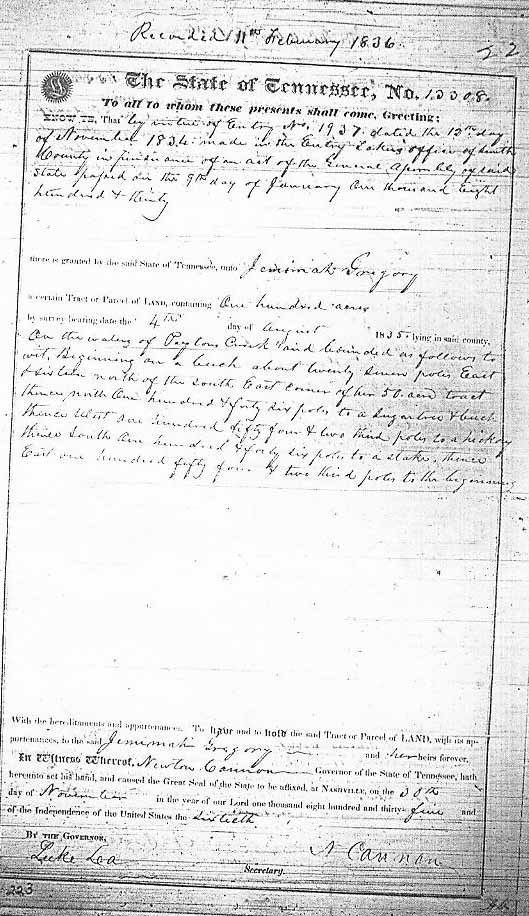 Recorded 11th February 1836
22
The State of Tennessee, No. 13308.
To all to whom these presents shall come, Greeting:
KNOW YE, That by virtue of Entry No. 1937. dated the 12th day
of November 1834 made in the Entry Takers office of Smith
County in pursuance of an act of the General Assembly of said
State passed on the 9th day of January One thousand Eight
hundred & thirty
there is granted by the said State of Tennessee, unto Jemimah Gregory
a certain Tract or Parcel of LAND, containing One hundred acres
by survey bearing date the 4th day of August 1835 lying in said county,
On the waters of Peytons Creek and bounded as follows to
wit, Beginning on a beech about twenty seven poles East
& sixteen north of the South East corner of her 50 acre tract
thence north One hundred & forty six poles to a sugartree & beech
thence West one hundred fifty four & two third poles to a hickory
thence South One hundred & forty six poles to a stake, thence
East one hundred fifty four & two third poles to the beginning
With the hereditaments and appurtenances. To have and to hold the said Tract or Parcel of LAND, with its ap-
purtenances, to the said Jemimah Gregory and her heirs forever.
In Witness Whereof, Newton Cannon Governor of the State of Tennessee, hath
hereunto set his hand, and caused the Great Seal of the State to be affixed, at NASHVILLE, on the 30th
day of November in the year of our Lord one thousand eight hundred and thirty-five and
of the Independence of the United States the sixtieth
BY THE GOVERNOR,
N Cannon
Luke Lea
Secretary.
223